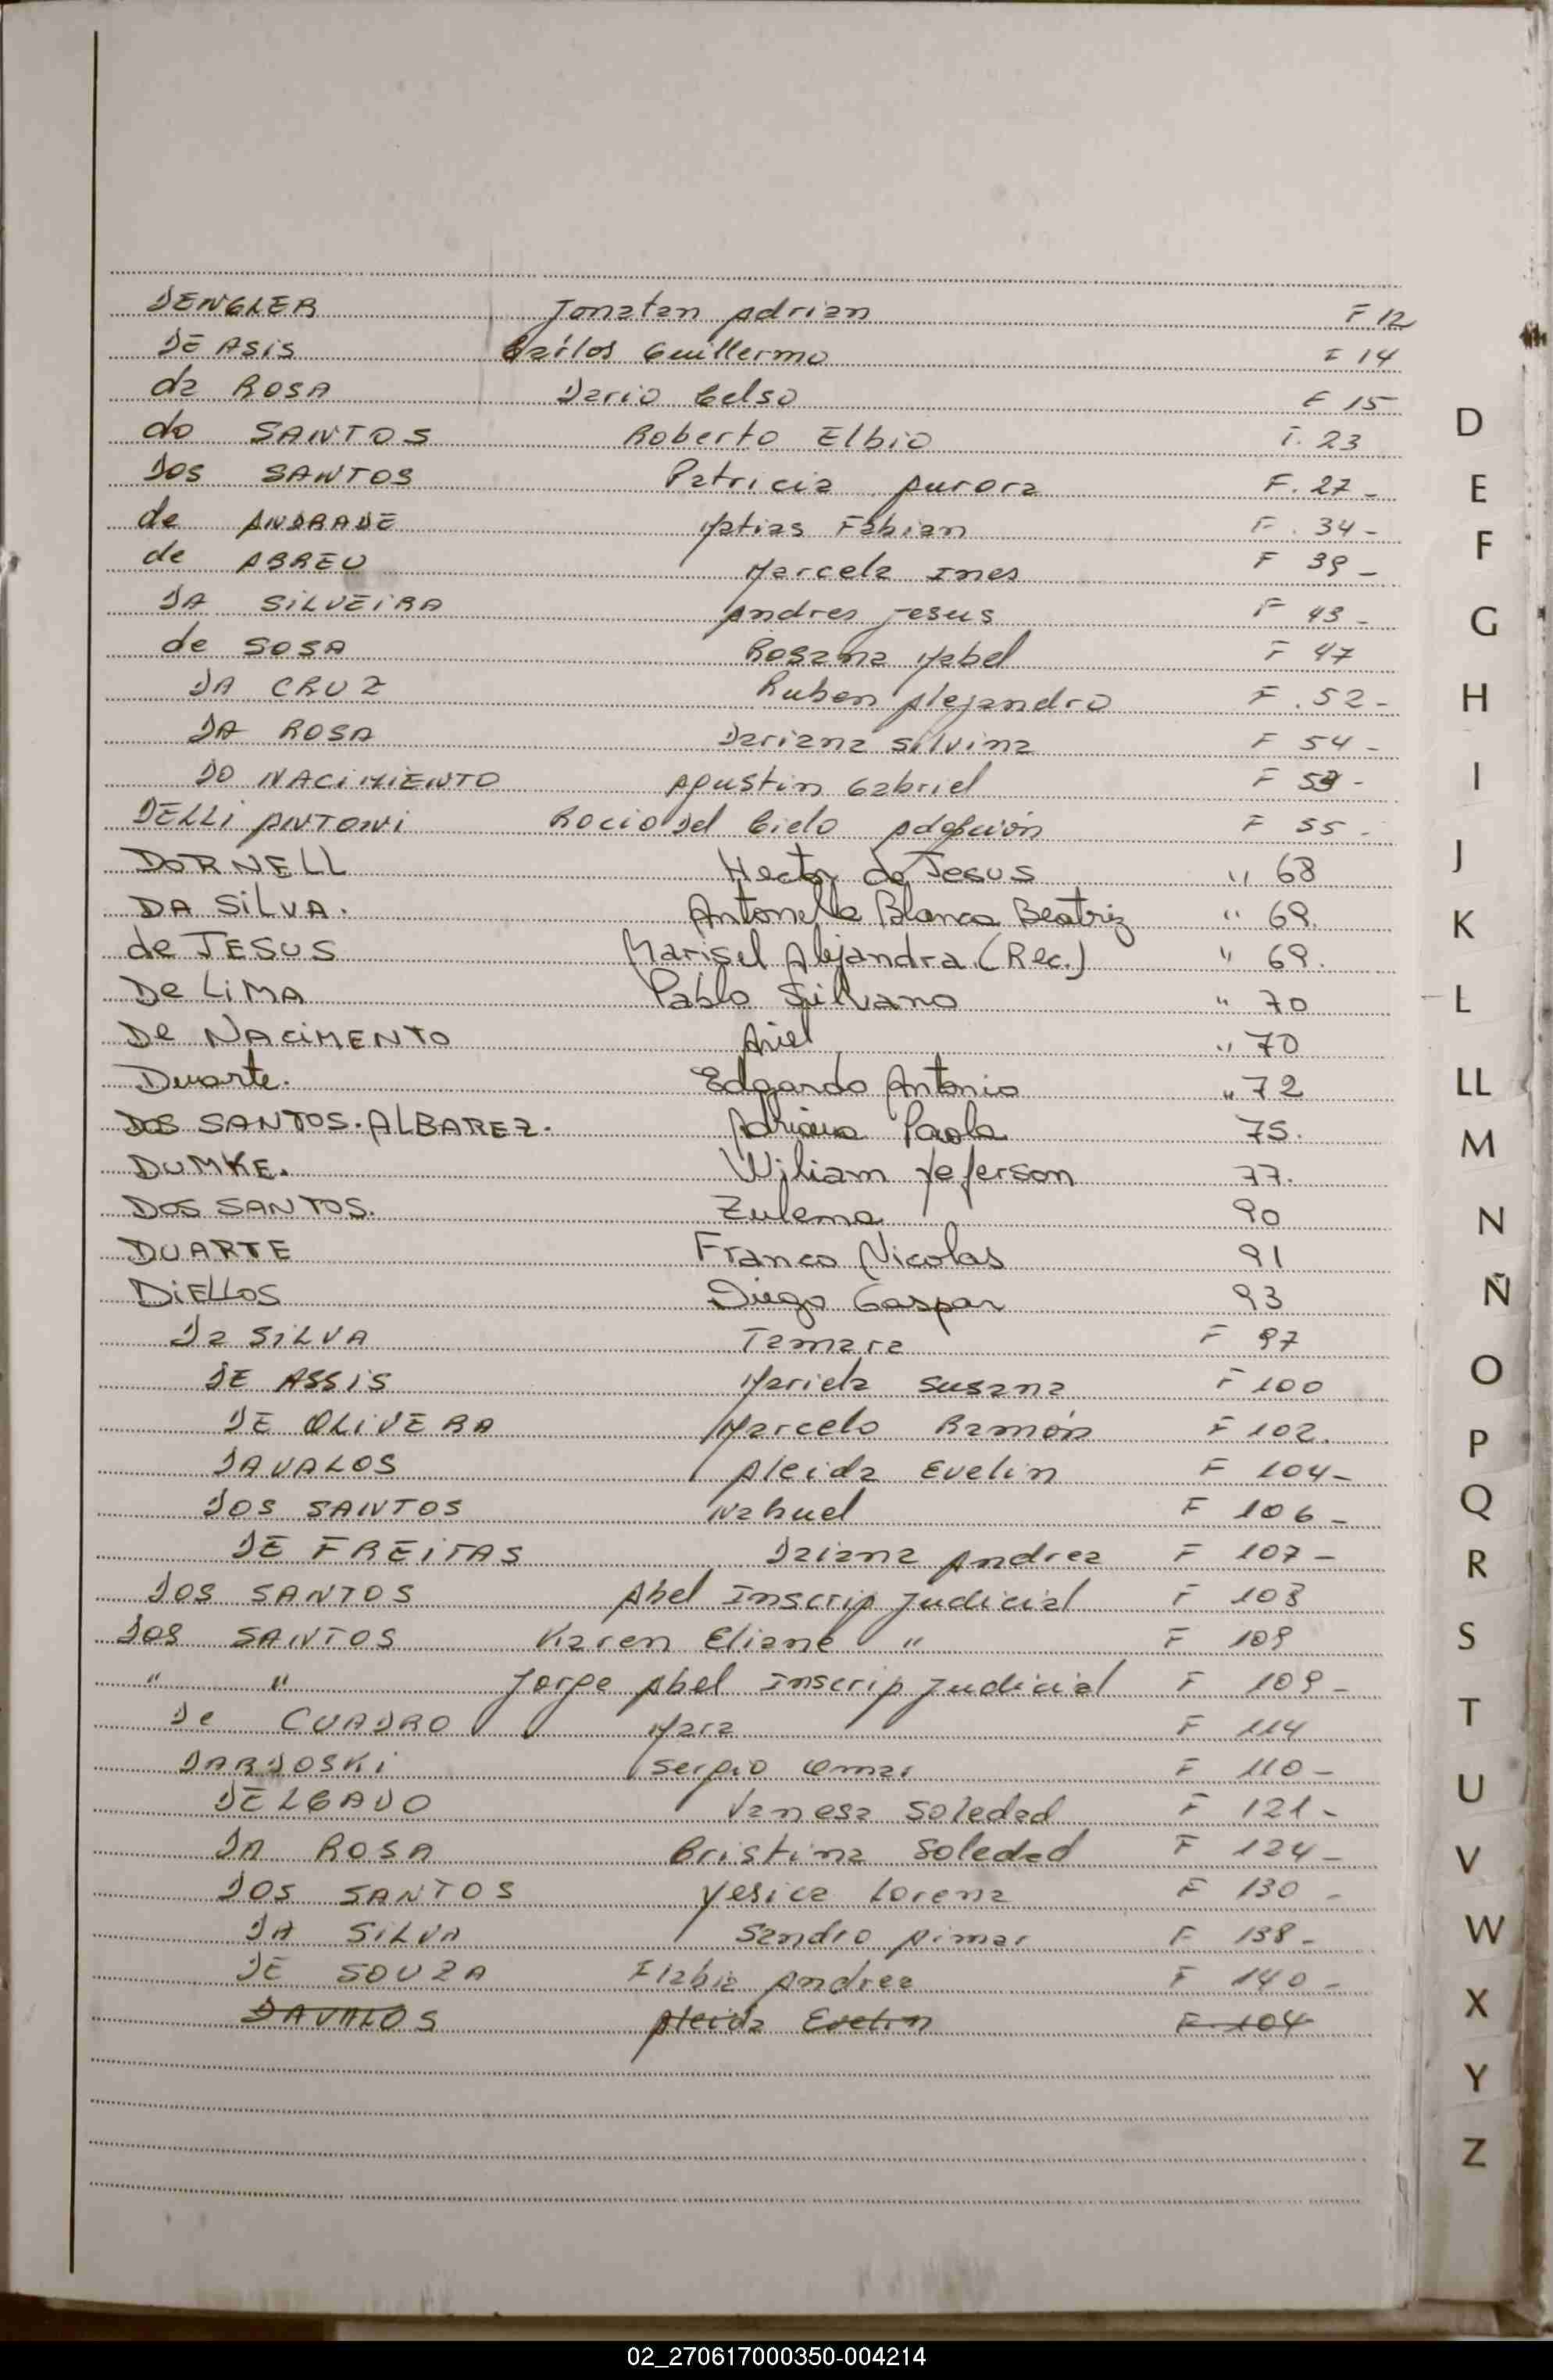 DENGLER Jonatan Adrian F 12
DE ASIS Carlos Guillermo F 14
da ROSA Dario Celso F 15
do SANTOS Roberto Elbio F. 23
DOS SANTOS Patricia Aurora F. 27 -
de ANDRADE Matias Fabian F. 34 -
de ABREU Marcela Ines F 39 -
DA SILVEIRA Andres Jesus F 43 -
de SOSA Rosana Mabel F 47
DA CRUZ Ruben Alejandro F. 52 -
DA ROSA Dariana Silvina F 54 -
DO NACIMIENTO Agustin Gabriel F -
DELLI ANTONI Rocio Del Cielo Adopción F 55 -
DORNELL Hector de Jesus " 68
DA SILVA. Antonella Blanca Beatriz " 69.
de JESUS Marisel Alejandra (Rec.) " 69.
De LIMA Pablo Silvano " 70
De NACIMENTO Ariel " 70
Duarte. Edgardo Antonio " 72
DOS SANTOS. ALBAREZ. Adriana Paola 75.
DUMKE. Wiliam Yeferson 77.
DOS SANTOS. Zulema 90
DUARTE Franco Nicolas 91
DIELLOS Diego Gaspar 93
Da SILVA Tamara F 97
DE ASSIS Mariela Susana F 100
DE OLIVERA Marcelo Ramón F 102.
DAVALOS Aleida Evelin F 104 -
DOS SANTOS Nahuel F 106 -
DE FREITAS Daiana Andrea F 107 -
DOS SANTOS Abel Inscrip Judicial F 108
DOS SANTOS Karen Eliane " F 109
" " Jorge Abel Inscrip Judicial F 109 -
De CUADRO Mara F 114
DARDOSKI Sergio Omar F 110 -
DELGADO Vanesa Soledad F 121 -
DA ROSA Cristina Soledad F 124 -
DOS SANTOS Yesica Lorena F 130 -
DA SILVA Sandro Aimar F 138 -
DE SOUZA Flabia Andrea F 140 -
DAVALOS Aleida Evelin F 104
D
E
F
G
H
I
J
K
L
LL
M
N
Ñ
O
P
Q
R
S
T
U
V
W
X
Y
Z
02_270617000350-004214